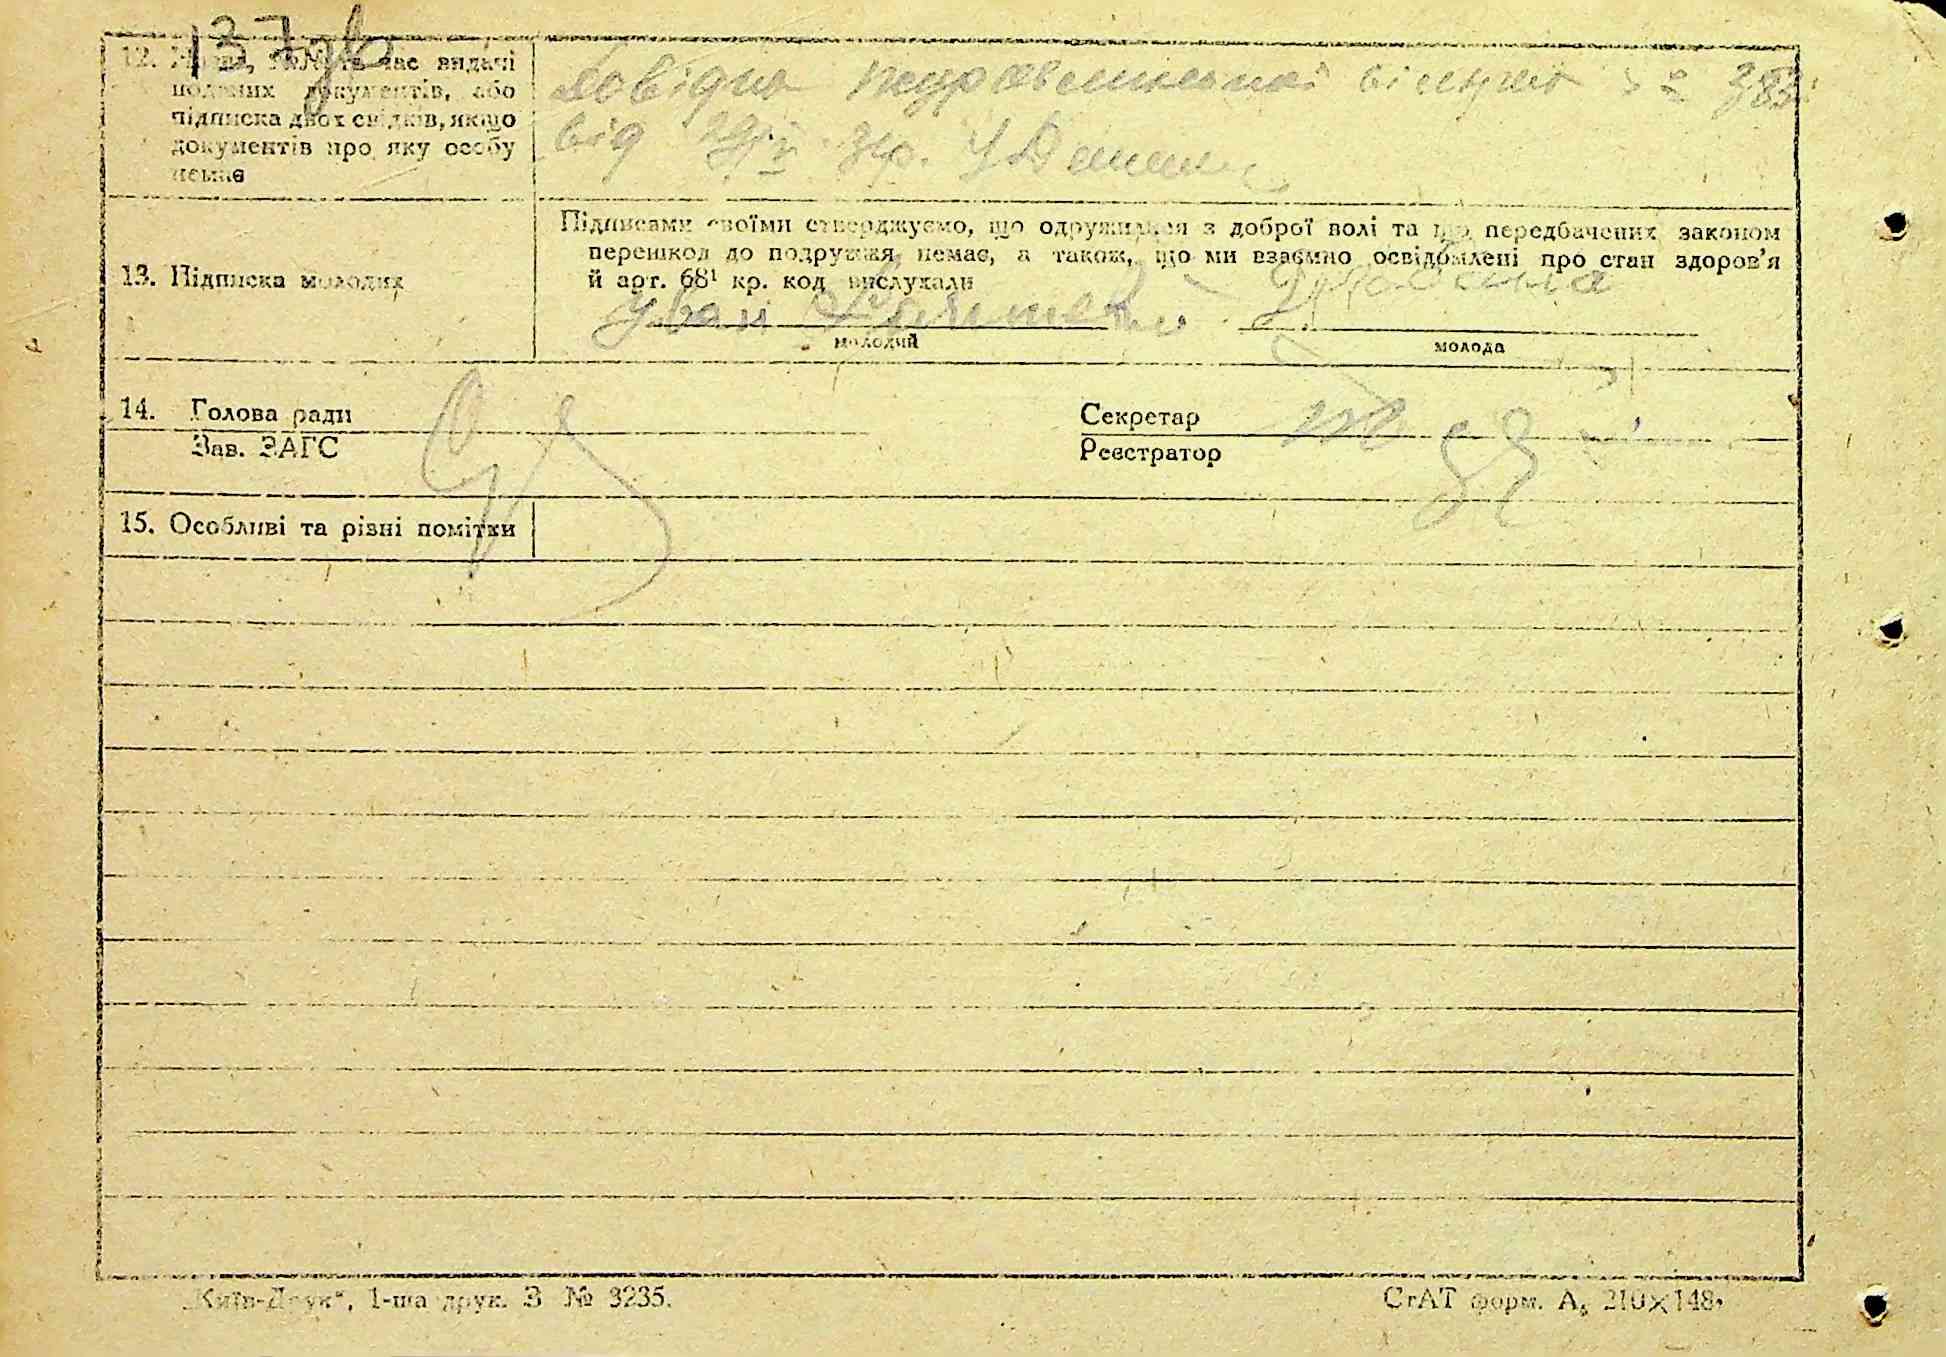 137зв
12. Назва, №№ та час видачі
поданих документів, або
підписка двох свідків, якщо
документів про яку особу
немає
Довідка Журавлинської сільради
від
Підписами своїми стверджуємо, що одружилися з доброї волі та що передбачених законом
перешкод до подружжя немає, а також, що ми взаємно освідомлені про стан здоров'я
й арт. 68¹ кр. код вислухали
13. Підписка молодих
Іван
молодий
молода
14. Голова ради
Секретар
Зав. ЗАГС
Реєстратор
15. Особливі та різні помітки
„Київ-Друк“, 1-ша друк. З № 3235.
СтАТ форм. А₅ 210×148.